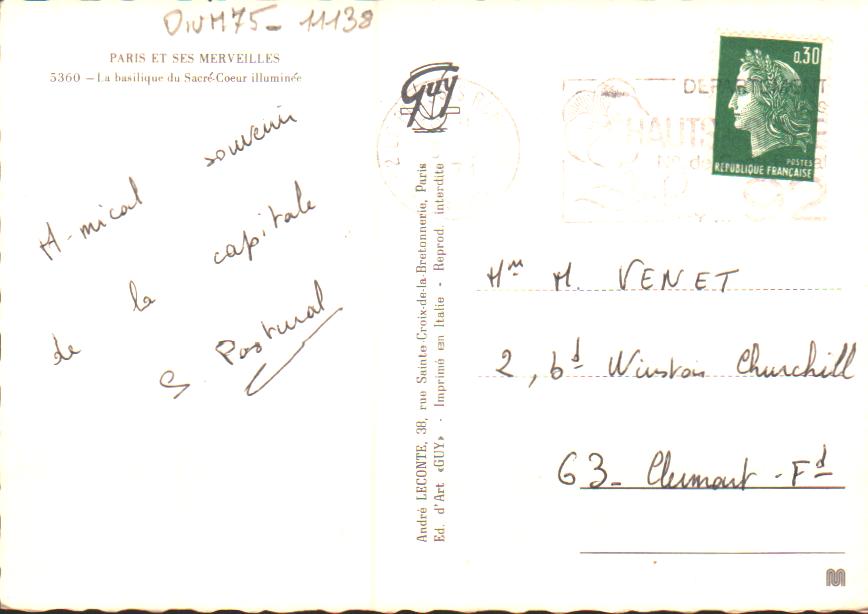 DIVM75- 11138
PARIS ET SES MERVEILLES
5360 - La basilique du Sacré-Coeur illuminée
A-mical souvenir
de la capitale
S Pastural
Guy
André LECONTE, 38, rue Sainte-Croix-de-la-Bretonnerie, Paris
Ed. d'Art «GUY» - Imprimé en Italie - Reprod. interdite
0,30
POSTES
REPUBLIQUE FRANÇAISE
DEPARTEMENT
HAUTS
N° de
Mm M. VENET
2, bd Winston Churchill
63- Clermont-Fd